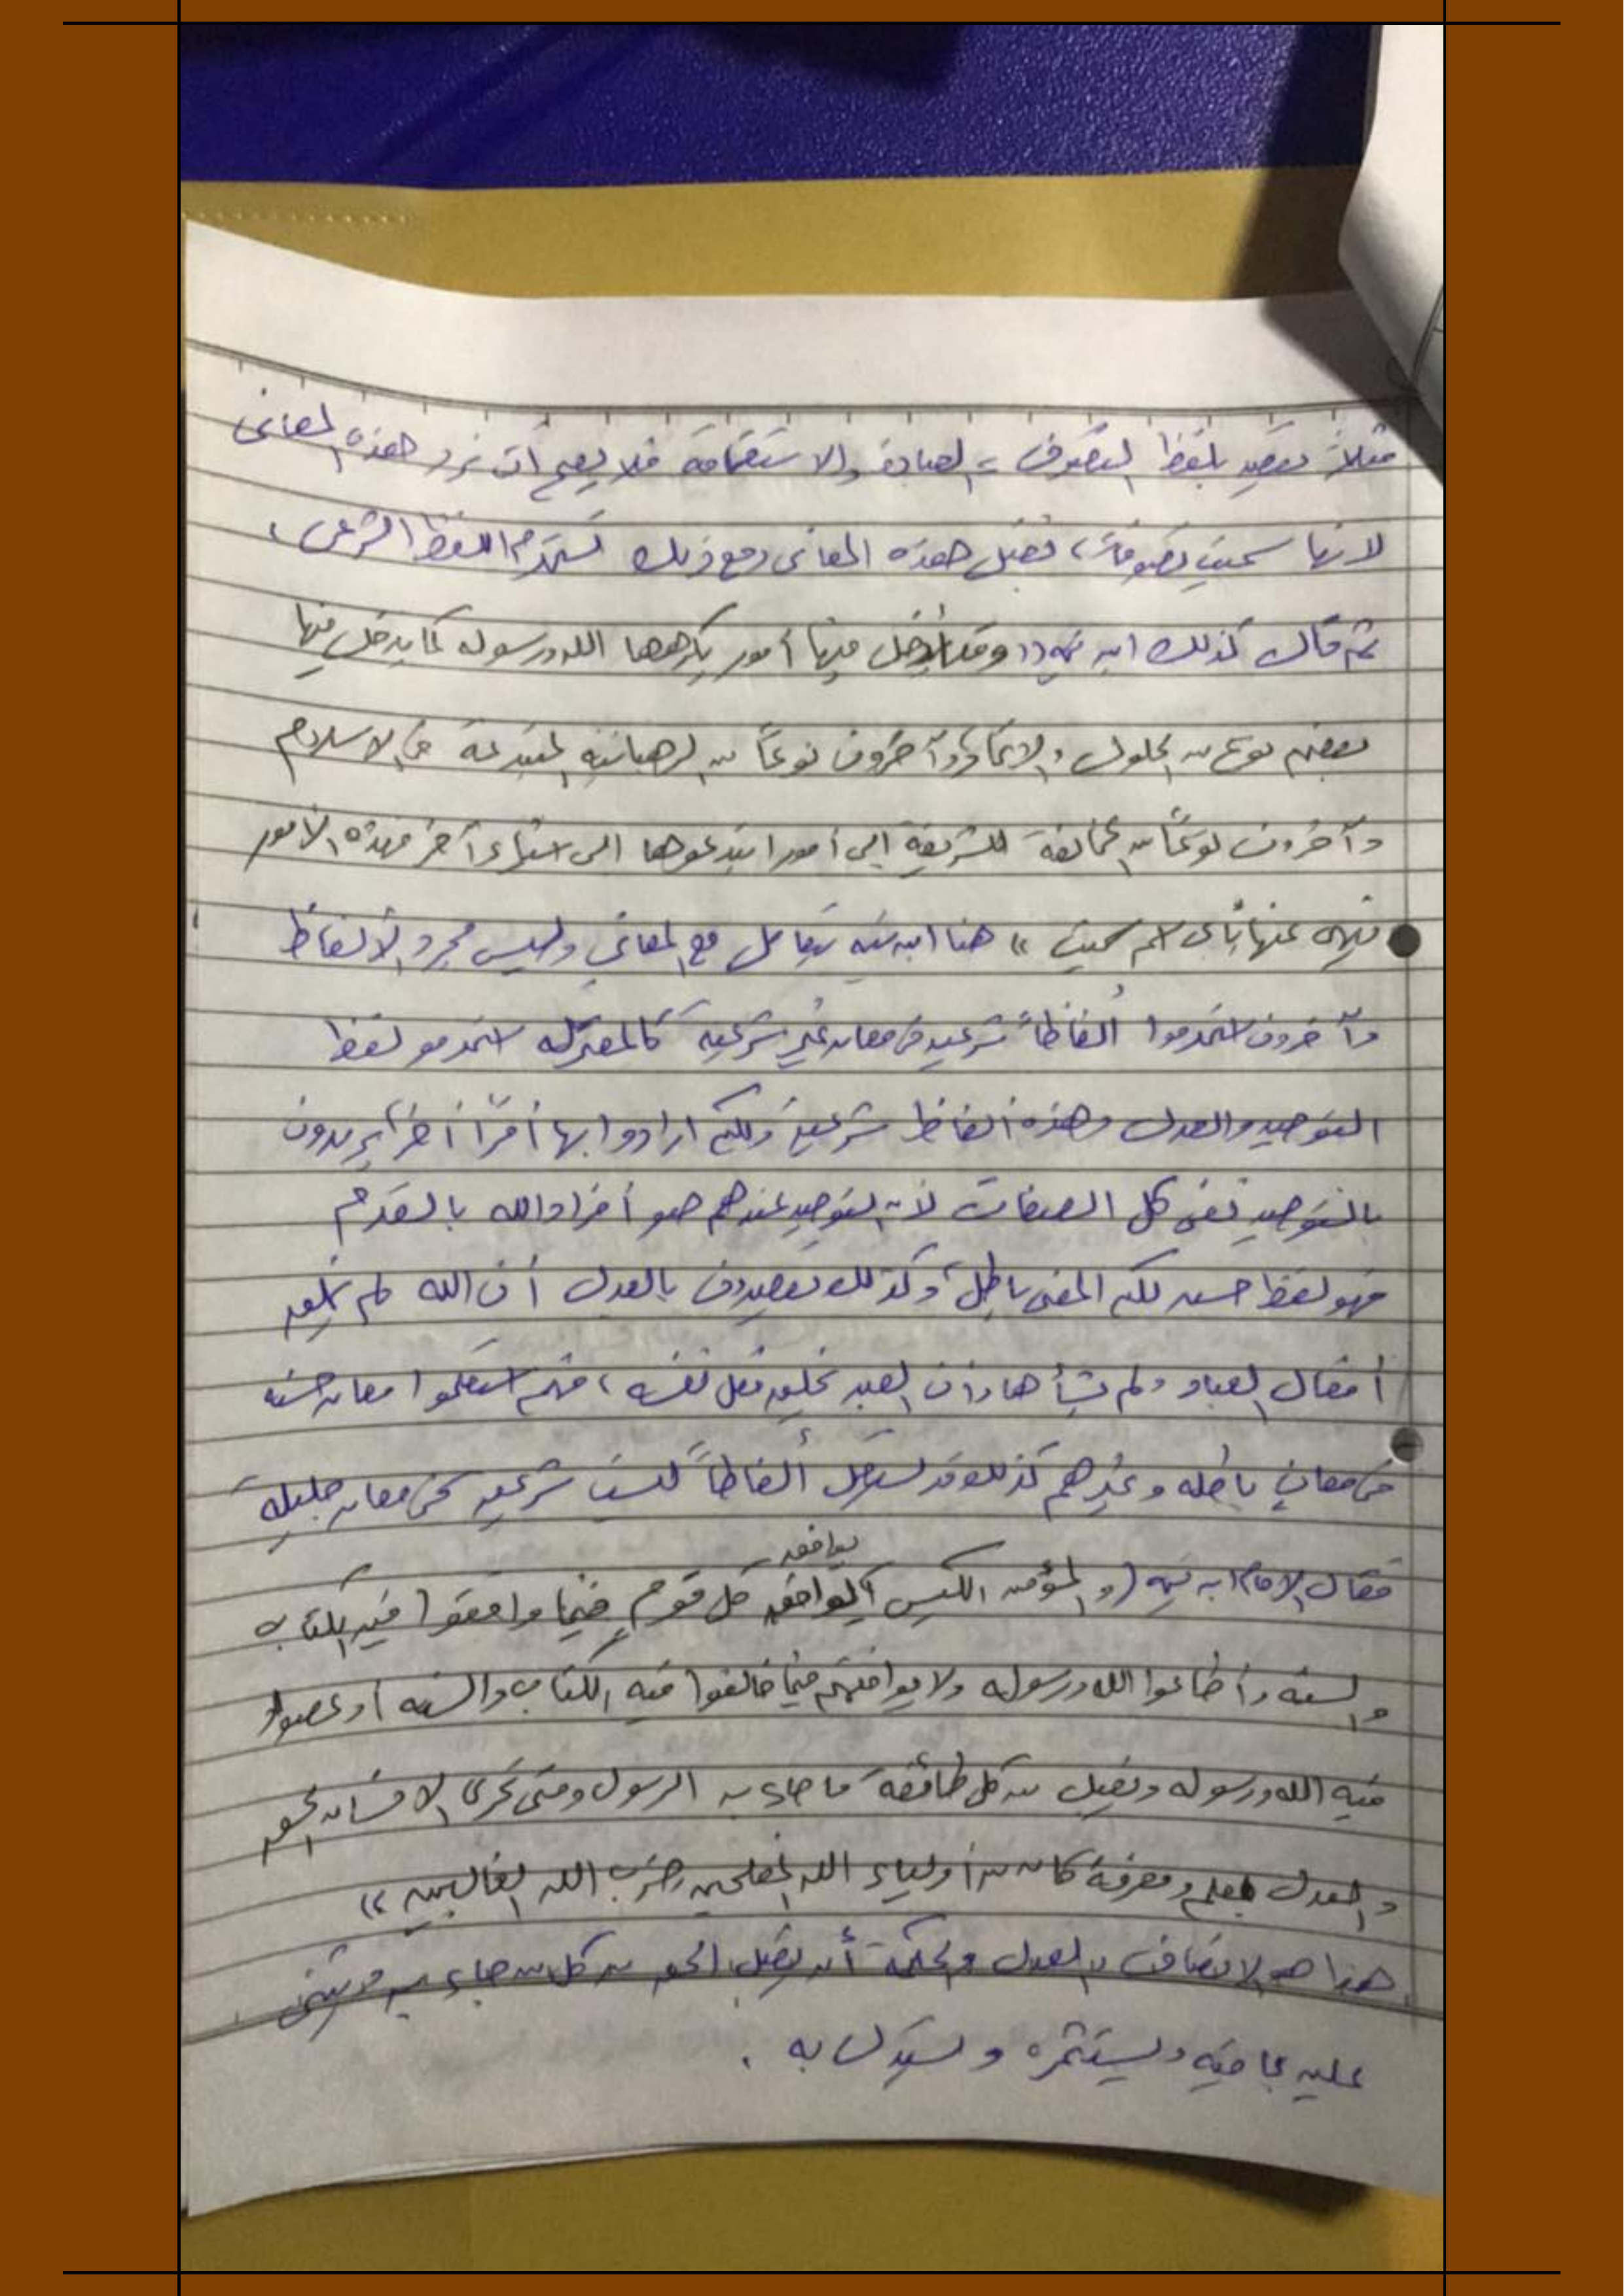 مثلاً يقصد بلفظ التصوف، العبادة والاستقامة فلا يصح أن نرد هذه المعاني
لانها سميت تصوفاً، نقبل هذه المعاني ومع ذلك نستخدم اللفظ الشرعي،
ثم قال كذلك ابن تيمية ((وقد أُدخل فيها أمور يكرهها الله ورسوله كما يدخل فيها
بعضهم نوع من الحلول والاتحاد وآخرون نوعاً من الرهبانية المبتدعة في الاسلام
وآخرون نوعاً من مخالفة للشريعة إلى أمور ابتدعوها الى اشياء آخر فهذه الامور
ينهى عنها بأي اسم سميت )) هنا ابن تيمية يتعامل مع المعاني وليس مجرد الألفاظ
وآخرون استخدموا ألفاظاً شرعية في معان غير شرعية كالمعتزلة استخدمو لفظ
التوحيد والعدل وهذه ألفاظ شرعية ولكن ارادوا بها أمراً أخراً يريدون
بالتوحيد نفي كل الصفات لأن التوحيد عندهم هو أفراد الله بالقدم
فهو لفظ حسن لكن المعنى باطل، وكذلك يقصدون بالعدل أن الله لم يخلق
أفعال العباد ولم يشأها وأن العبد يخلق فعل نفسه، فهم استعملوا معان حسنه
في معانٍ باطله وغيرهم كذلك قد يستعمل ألفاظاً ليست شرعية في معان جليلة
فقال الامام ابن تيمية (والمؤمن الكيس يوافق كل قومٍ فيما وافقوا فيه الكتاب
والسنه وأطاعوا الله ورسوله ولا يوافقهم فيما خالفوا فيه الكتاب والسنه أو عصوا
فيه الله ورسوله ويقبل من كل طائفة ما جاء به الرسول ومتى تحرى الانسان الحق
والعدل بعلم ومعرفة كان من أولياء الله المفلحين وحزب الله الغالبين ))
هذا هو الانصاف والعدل والحكمة أن يقبل الحق من كل من جاء به ويثني
عليه بما فيه ويستثمره ويستدل به .